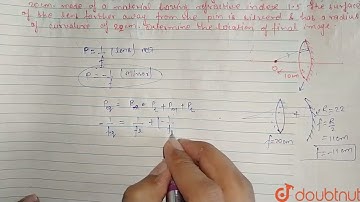 20cm. made of a material having refractive index 1.5 The surface
of the lens farther away from the pin is silvered & has a radius
of curvature of 22cm. Determine the location of final image
P = 1/f (lens)
P = -1/f (Mirror)
10cm
Peq = P + P2 + Pm + P2
-1/feq = 1/f2 + [-1/f
R = 22
f = R/2
= 11cm
f = -11cm
f = 20cm
doubtnut